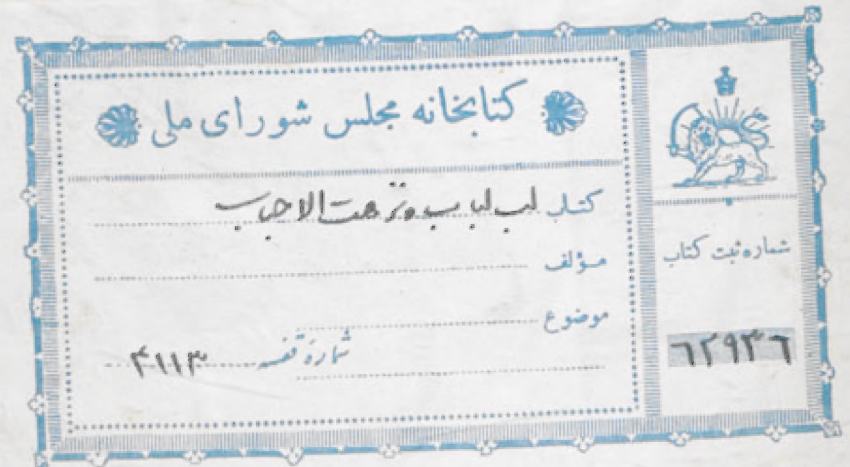 کتابخانه مجلس شورای ملی
کتاب لب لباب و نزهت الاحباب
مؤلف
موضوع
شمارهٔ قفسه ۴۱۱۳
شماره ثبت کتاب
٦٢٩٣٦